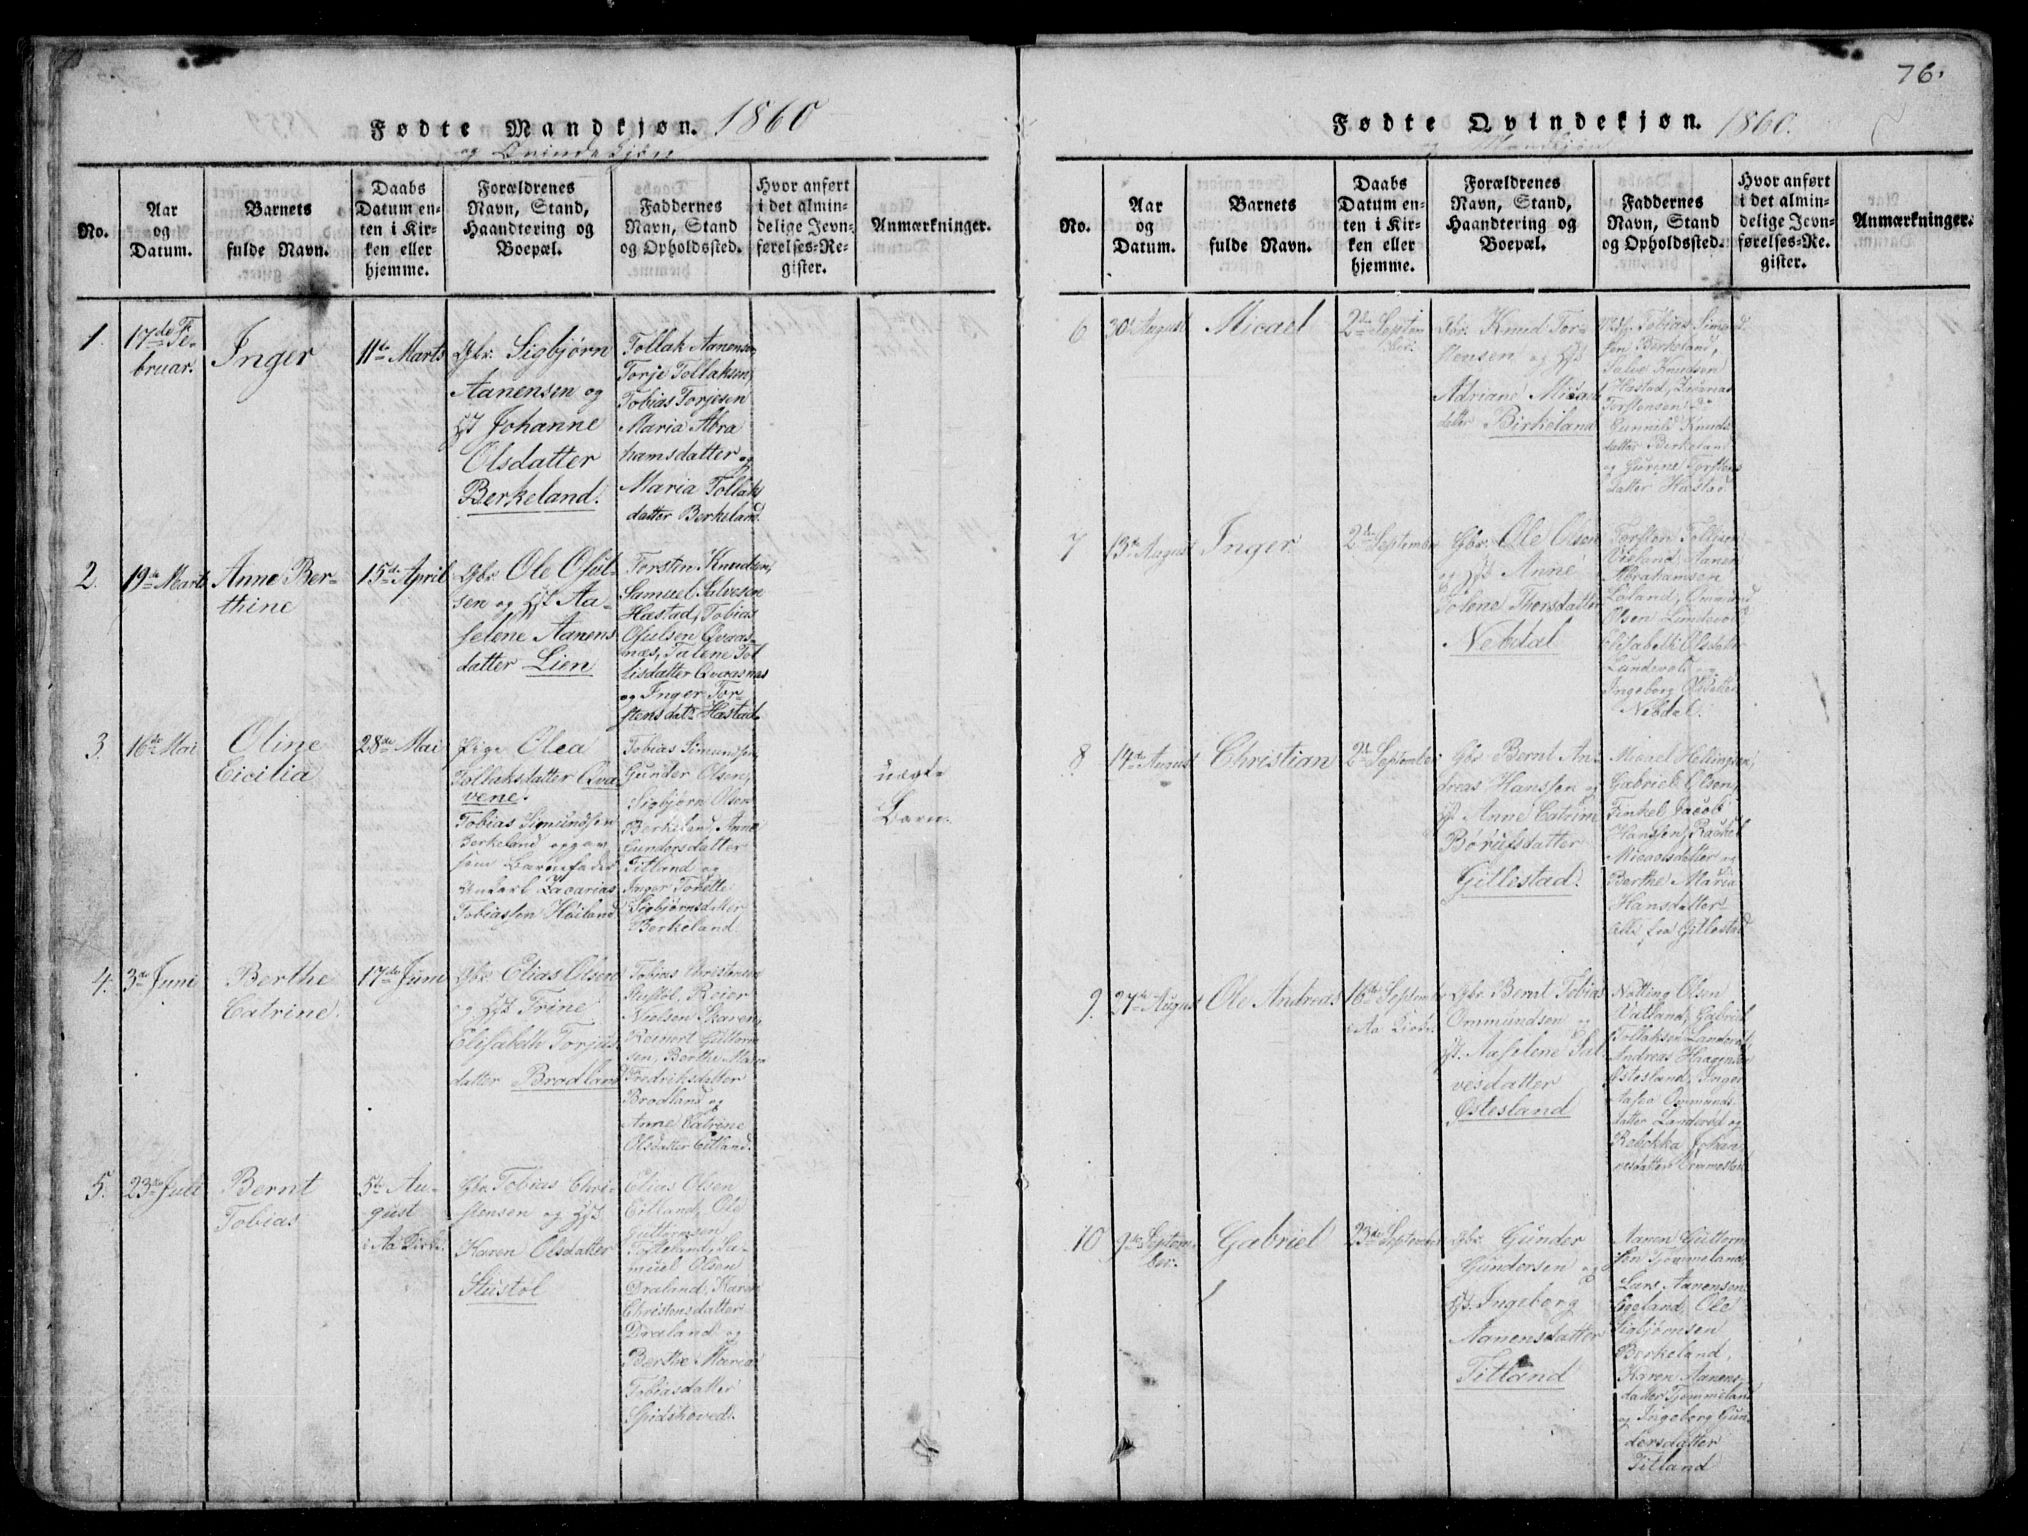 76.
Fødte Mandkjøn. 1860
og Qvindekjøn
No.
Aar
og
Datum.
Barnets
fulde Navn.
Daabs
Datum en-
ten i Kir-
ken eller
hjemme.
Forældrenes
Navn, Stand,
Haandtering og
Boepæl.
Faddernes
Navn, Stand
og Opholdssted.
Hvor anført
i det almin-
delige Jevn-
førelses-Re-
gister.
Anmærkninger.
1.
17de Fe-
bruar.
Inger
11te Marts
Gbr. Sigbjørn
Aanensen og
Hst Johanne
Olsdatter
Berkeland.
Tollak Aanensen
Torje Tollaksen,
Tobias Torjesen
Maria Abra
hamsdatter og
Maria Tollaks
datter Berkeland.
2.
19de Marts
Anne Ber-
thine
15de April
Gbr. Ole Ofül-
sen og Hst Aa-
selene Aanens
datter Lien
Torsten Knudsen,
Samuel Salvesen
Hæstad, Tobias
Ofulsen Qveras-
næs, Talene Tol
lisdatter Qverasnæs
og Inger Tor-
stensdatr Hæstad.
3
16de Mai
Oline
Cicilia
28de Mai
Pige Olea
Tollaksdatter Qva
vene.
Tobias Simundsen
Berkeland opgav
som Barnefader
Ungkarl Zacarias
Tobiassen Høiland
Tobias Simundsen,
Gunder Olsen,
Sigbjørn Olsen
Berkeland, Anne
Gundersdatter
Titland og
Inger Tonette
Sigbjørnsdatter
Berkeland
uægte
Barn.
4.
3de Juni
Berthe
Catrine
17de Juni
Gbr. Elias Olsen
og Hst Trine
Elisabeth Torjus
datter Brodland
Tobias Christensen
Stustøl, Reier
Nielsen Skaren,
Reinert Guttorm
sen, Berthe Maria
Fredriksdatter
Brodland og
Anne Catrine
Olsdatter Eitland.
5.
23de Juli
Bernt
Tobias
5te Au-
gust
i Aa Kirke.
Gbr. Tobias Chri-
stensen og Hst
Karen Olsdatter
Stustøl
Elias Olsen
Eitland, Ole
Guttormsen
Fosseland, Sa-
muel Olsen
Draland, Karen
Christensdatter
Draland og
Berthe Maria
Tobiasdatter
Spidshoved.
Fødte Qvindekjøn. 1860.
og Mandkjøn
No.
Aar
og
Datum.
Barnets
fulde Navn.
Daabs
Datum en-
ten i Kir-
ken eller
hjemme.
Forældrenes
Navn, Stand,
Haandtering og
Boepæl.
Faddernes
Navn, Stand
og Opholdssted.
Hvor anført
i det almin-
delige Jevn-
førelses-Re-
gister.
Anmærkninger.
6
30 August
Micael
2de Septem
ber.
Gbr. Knud Tor-
stensen og Hst
Adriane Micaels
datter Birkeland
Tobias Simund
sen Berkeland,
Salve Knudsen
Hæstad, Zacarias
Torstensen do
Gunnild Knuds
datter Berkeland
og Gurine Torstens
datter Hæstad
7
13de August
Inger
2de September
Gbr. Ole Olsen
og Hst Anne
Tolene Thorsdatter
Nebdal
Torsten Tollisen
Opsland, Aanen
Abrahamsen
Løland, Ommund
Olsen Lundevold
Elisabeth Olsdatter
Lundevold og
Ingeborg Olsdatter
Nebdal.
8
14de August
Christian
2de September
Gbr. Bernt An-
dreas Hanssen og
Hst Anne Catrine
Børufsdatter
Gillestad.
Micael Hellingsen,
Gabriel Olsen,
Tinkel Jacob
Hanssen, Rachel
Micaelsdatter og
Berthe Maria
Hansdatter
Alle fra Gillestad
9.
27de August
Ole Andreas
16de September
i Aa Kirke.
Gbr. Bernt Tobias
Ommundsen og
Hst. Aaselene Sal-
vesdatter
Østesland
Notting Olsen
Vatland, Gabriel
Tollaksen Landerøt,
Andreas Haagensen
Østesland, Inger
Aasea Ommunds
datter Landerøt og
Rebekka Johan-
nesdatter Ommestad
10
9de Septem-
ber.
Gabriel
23de September
Gbr. Gunder
Gundersen og
Hst. Ingeborg
Aanensdatter
Titland
Aanen Guttorm
sen Tjømmeland,
Lars Aanensen
Egeland, Ole
Sigbjørnsen
Berkeland,
Karen Aanens-
datter Tjømmeland
og Ingeborg Gun
dersdatter
Titland